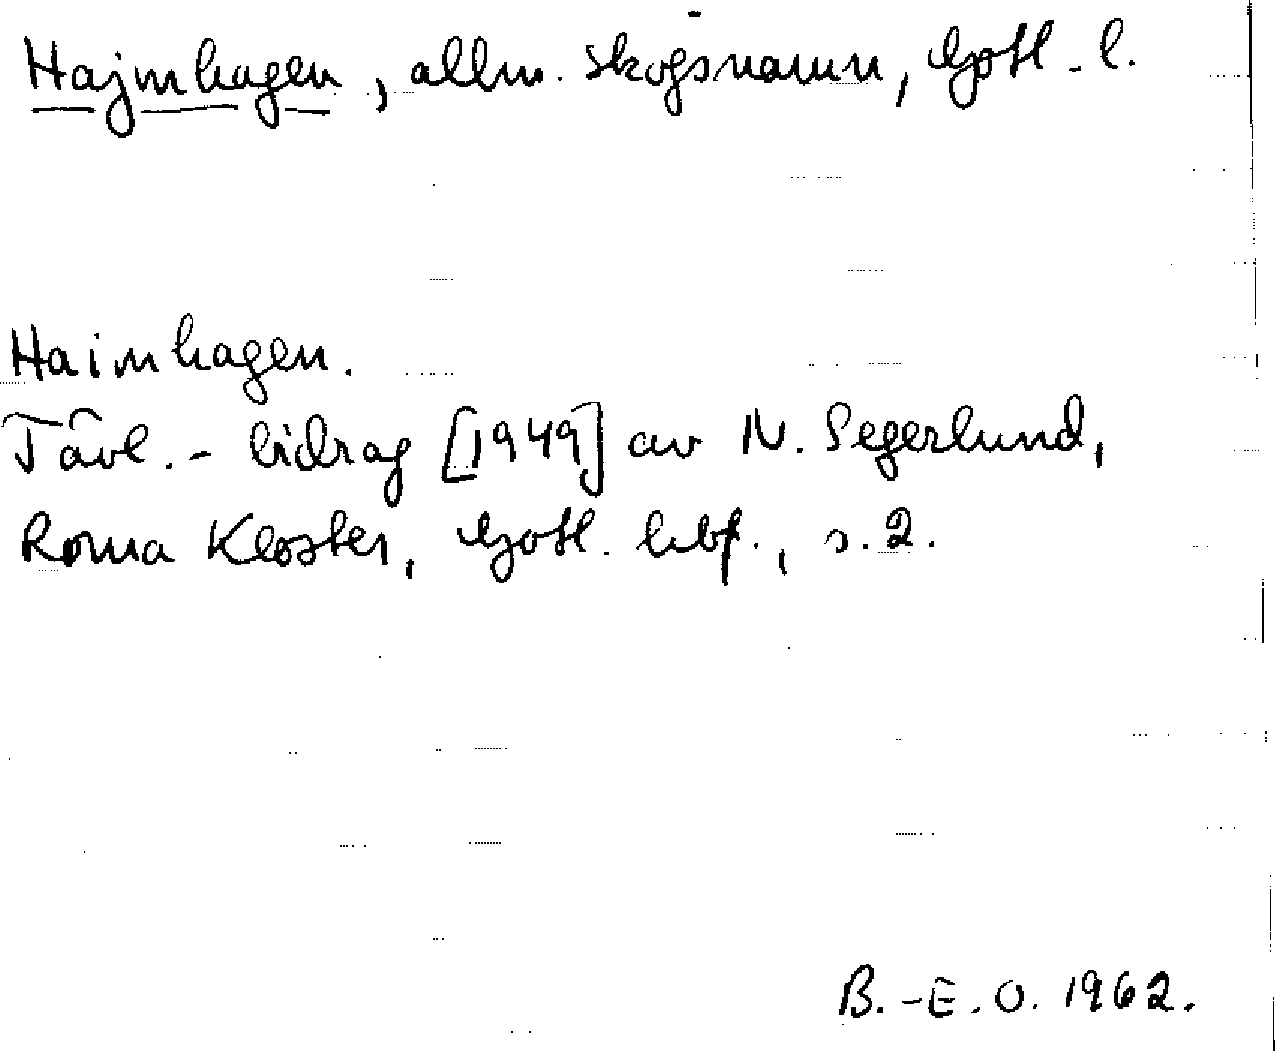 Hajmhagen, allm. skogsnamn, Gotl. l.
Haimhagen.
Tävl.-bidrag [1949] av N. Segerlund,
Roma Kloster, Gotl. hbf., s. 2.
B.-E. O. 1962.